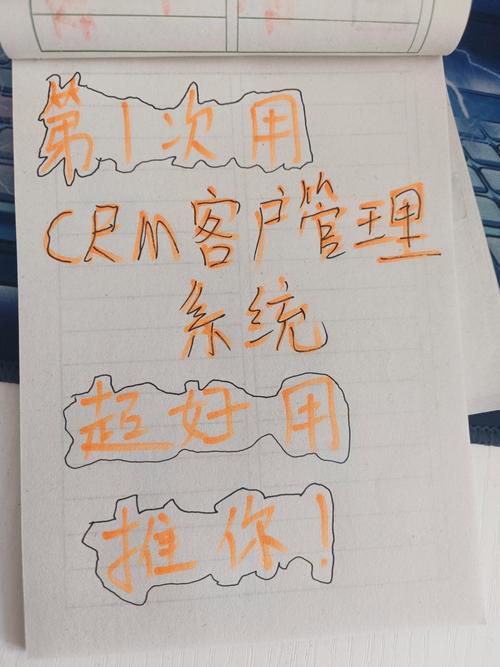 第1次用
CRM客户管理
系统
超好用
推你!